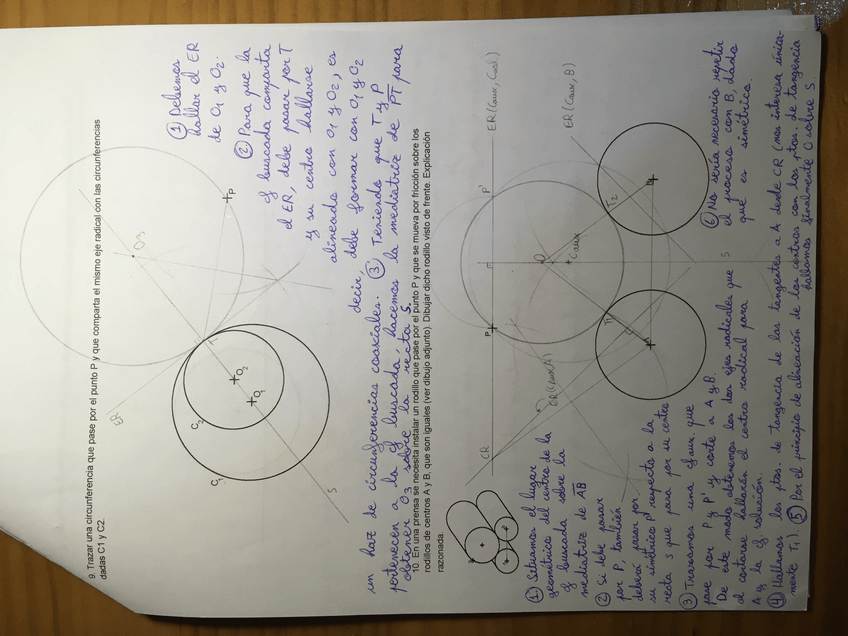 9. Trazar una circunferencia que pase por el punto P y que comparta el mismo eje radical con las circunferencias
dadas C1 y C2.
① Debemos
hallar el ER
de O1 y O2.
② Para que la
buscada comparta
el ER, debe pasar por T
y su centro hallarse
alineado con O1 y O2, es
decir, debe formar con O1 y O2
un haz de circunferencias coaxiales. ③ Teniendo que T y P
pertenecen a la buscada, hacemos la mediatriz de PT para
obtener O3 sobre la recta S.
ER
C1
C2
O1
O2
O3
P
T
S
10. En una prensa se necesita instalar un rodillo que pase por el punto P y que se mueva por fricción sobre los
rodillos de centros A y B, que son iguales (ver dibujo adjunto). Dibujar dicho rodillo visto de frente. Explicación
razonada.
① Situamos el lugar
geométrico del centro de la
buscada sobre la
mediatriz de AB
② Si debe pasar
por P, también
deberá pasar por
su simétrico P' respecto a la
recta s que pasa por su centro
③ Trazamos una aux. que
pase por P y P' y corte a A y B.
De este modo obtenemos los dos ejes radicales que
al cortarse hallarán el centro radical para
A y la solución.
④ Hallamos los ptos. de tangencia de las tangentes a A desde CR (nos interesa única-
mente T1). ⑤ Por el principio de alineación de los centros con los ptos. de tangencia
hallamos finalmente O sobre S.
⑥ No sería necesario repetir
el proceso con B, dado
que es simétrico.
CR
P
P'
ER (Caux, Csol)
ER (Caux, B)
ER (Caux, A)
O
Caux
T1
T2
S